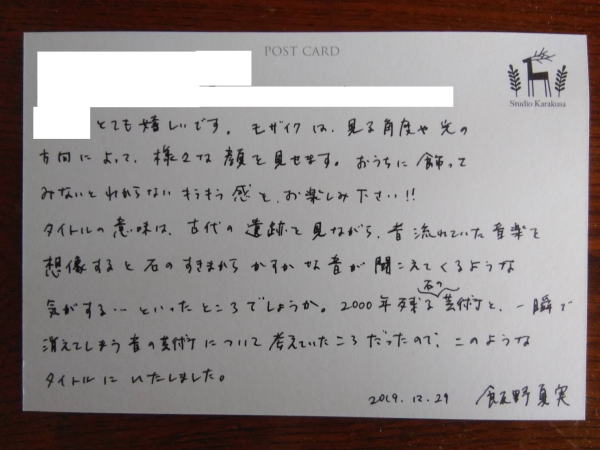 POST CARD
Studio Karakusa
とても嬉しいです。モザイクは、見る角度や光の
方向によって、様々な顔を見せます。おうちに飾って
みないとわからないキラキラ感を、お楽しみ下さい!!
タイトルの意味は、古代の遺跡を見ながら、昔流れていた音楽を
想像すると石のすきまからかすかな音が聞こえてくるような
気がする…といったところでしょうか。2000年残る石の芸術と、一瞬で
消えてしまう音の芸術について考えていたころだったので、このような
タイトルにいたしました。
2019.12.29 飯野夏実